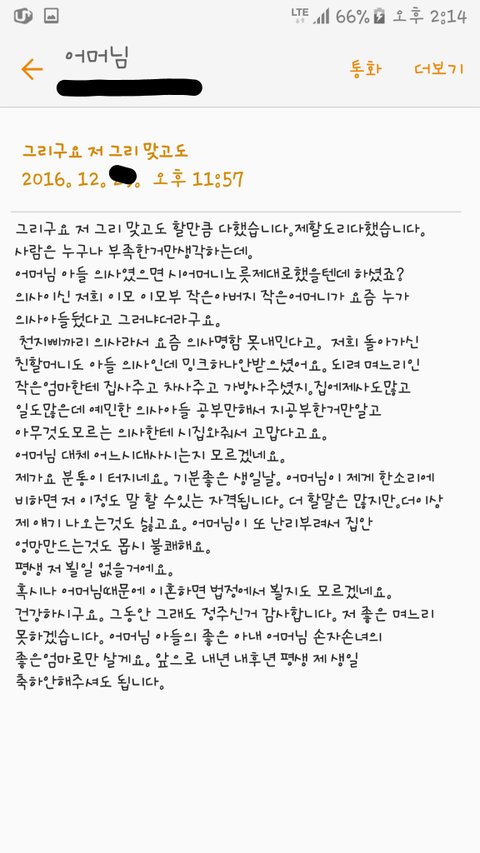 LTE 66% 오후 2:14
어머님
통화 더보기
그리구요 저 그리 맞고도
2016. 12. 오후 11:57
그리구요 저 그리 맞고도 할만큼 다했습니다.제할도리다했습니다.
사람은 누구나 부족한거만생각하는데.
어머님 아들 의사였으면 시어머니노릇제대로했을텐데 하셨죠?
의사이신 저희 이모 이모부 작은아버지 작은어머니가 요즘 누가
의사아들뒀다고 그러냐더라구요.
천지삐까리 의사라서 요즘 의사명함 못내민다고. 저희 돌아가신
친할머니도 아들 의사인데 밍크하나안받으셨어요. 되려 며느리인
작은엄마한테 집사주고 차사주고 가방사주셨지.집에제사도많고
일도많은데 예민한 의사아들 공부만해서 지공부한거만알고
아무것도모르는 의사한테 시집와줘서 고맙다고요.
어머님 대체 어느시대사시는지 모르겠네요.
제가요 분통이 터지네요. 기분좋은 생일날. 어머님이 제게 한소리에
비하면 저 이정도 말 할 수있는 자격됩니다. 더 할말은 많지만,더이상
제 얘기 나오는것도 싫고요. 어머님이 또 난리부려서 집안
엉망만드는것도 몹시 불쾌해요.
평생 저 뵐일 없을거에요.
혹시나 어머님때문에 이혼하면 법정에서 뵐지도 모르겠네요.
건강하시구요. 그동안 그래도 정주신거 감사합니다. 저 좋은 며느리
못하겠습니다. 어머님 아들의 좋은 아내 어머님 손자손녀의
좋은엄마로만 살게요. 앞으로 내년 내후년 평생 제 생일
축하안해주셔도 됩니다.